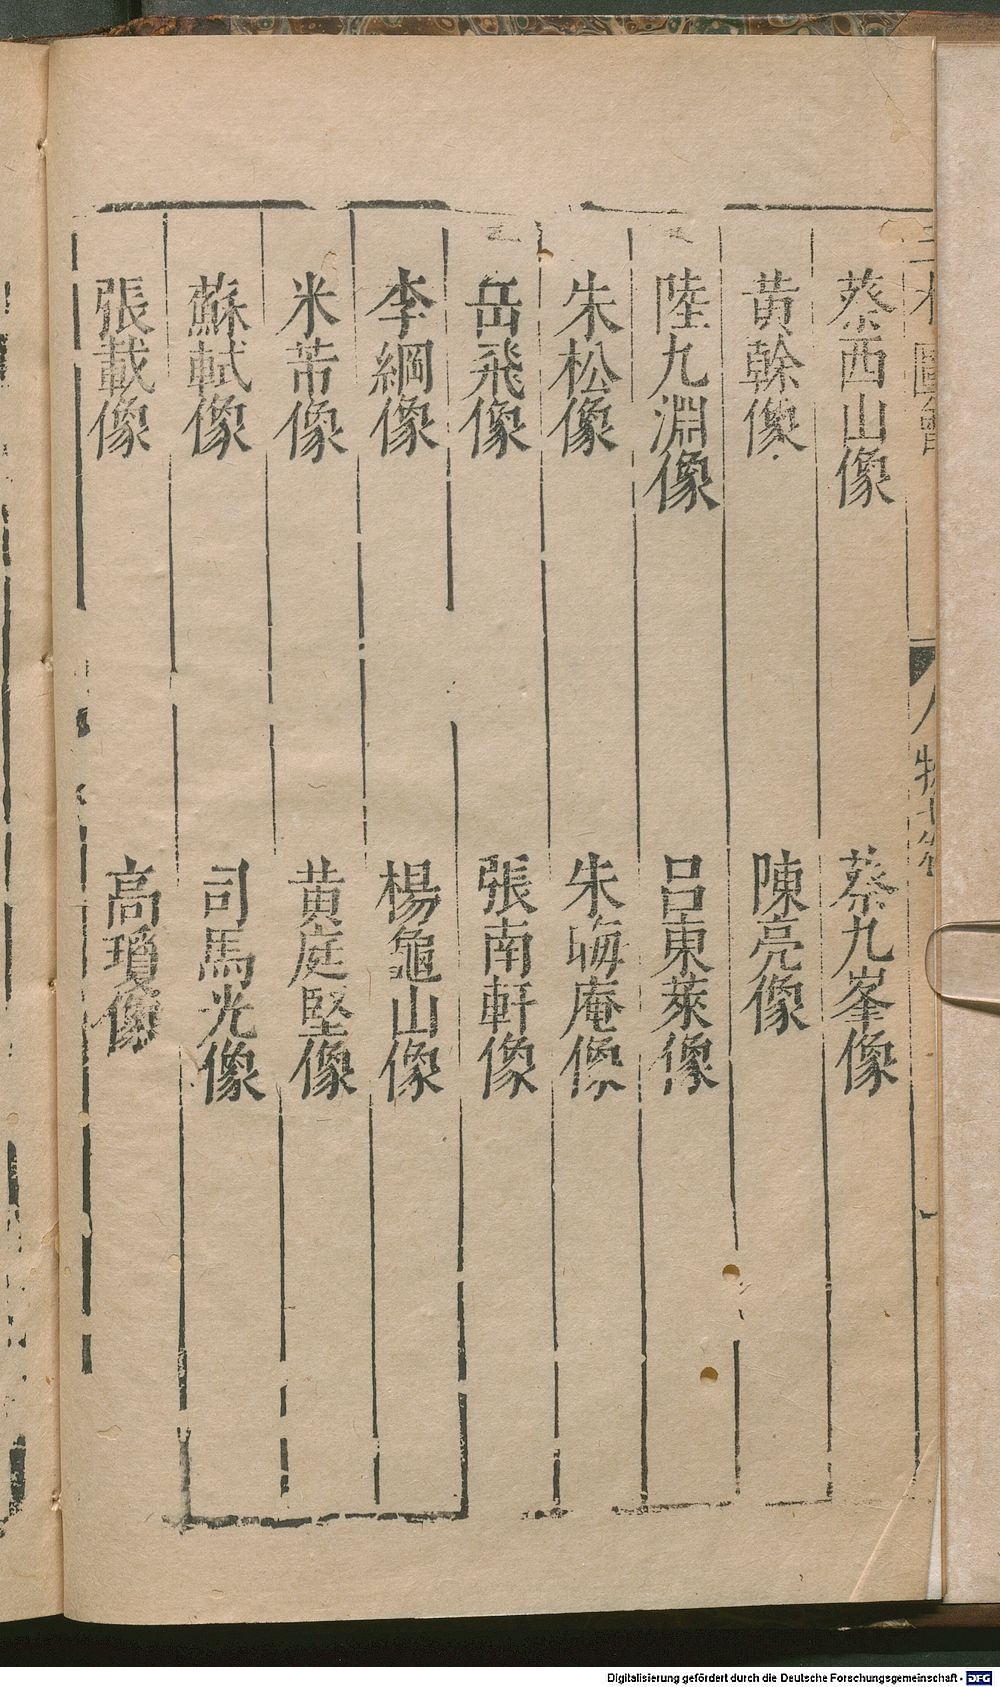 三才圖會 人物七卷
蔡西山像 蔡九峯像
黄榦像 陳亮像
陸九淵像 吕東萊像
朱松像 朱晦庵像
岳飛像 張南軒像
李綱像 楊龜山像
米芾像 黄庭堅像
蘇軾像 司馬光像
張載像 高瓊像
Digitalisierung gefördert durch die Deutsche Forschungsgemeinschaft - DFG